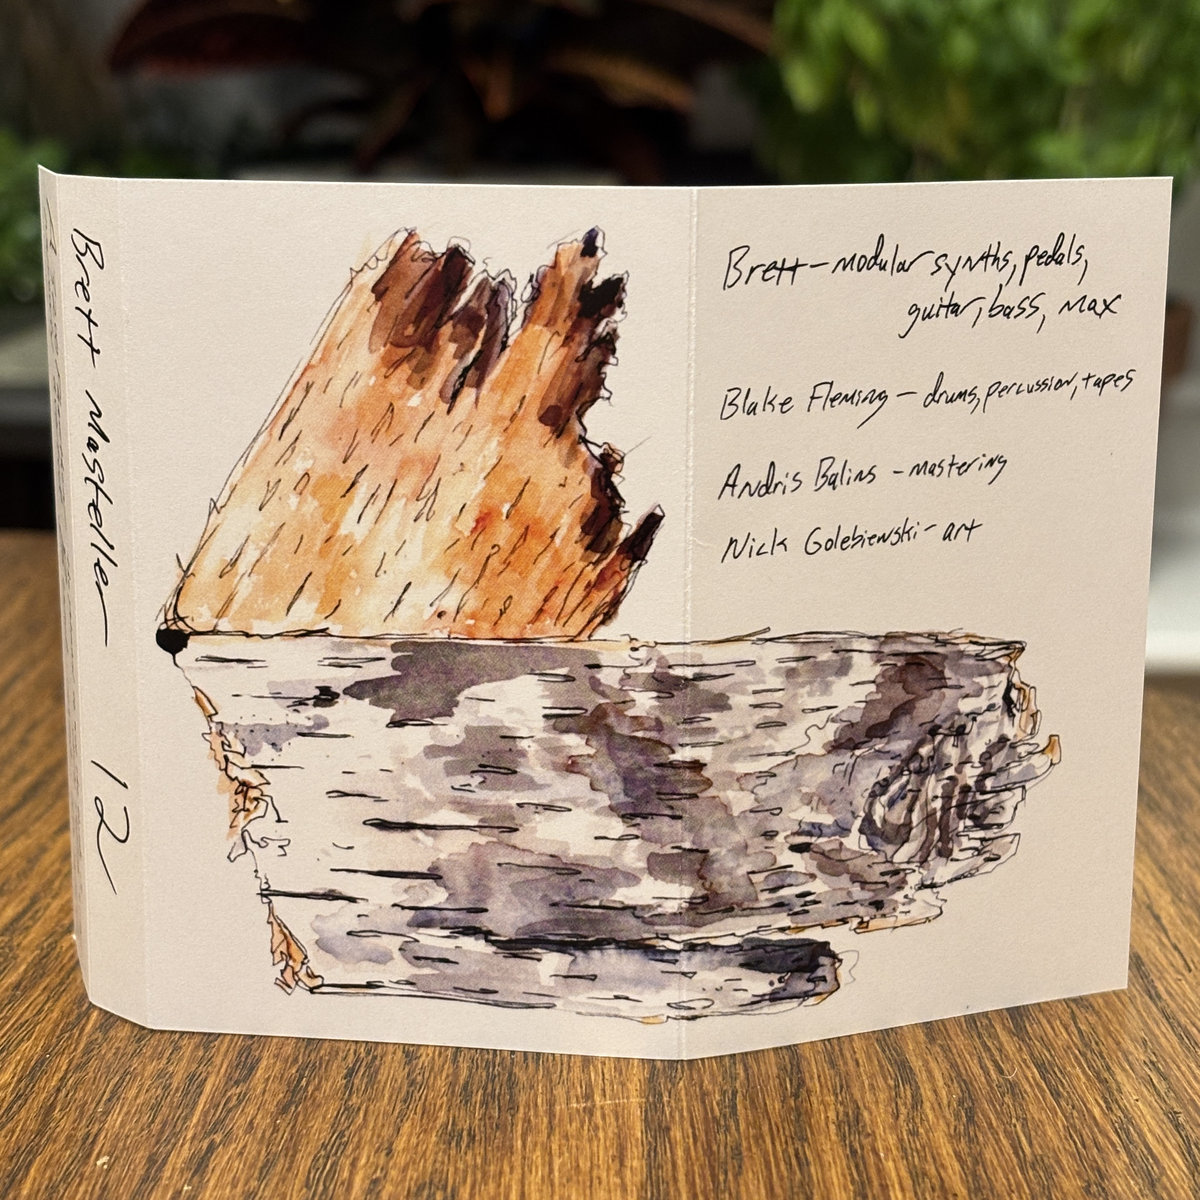 Brett Masteller 12
Brett - modular synths, pedals,
guitar, bass, Max
Blake Fleming - drums, percussion, tapes
Andris Balins - mastering
Nick Golebiewski - art